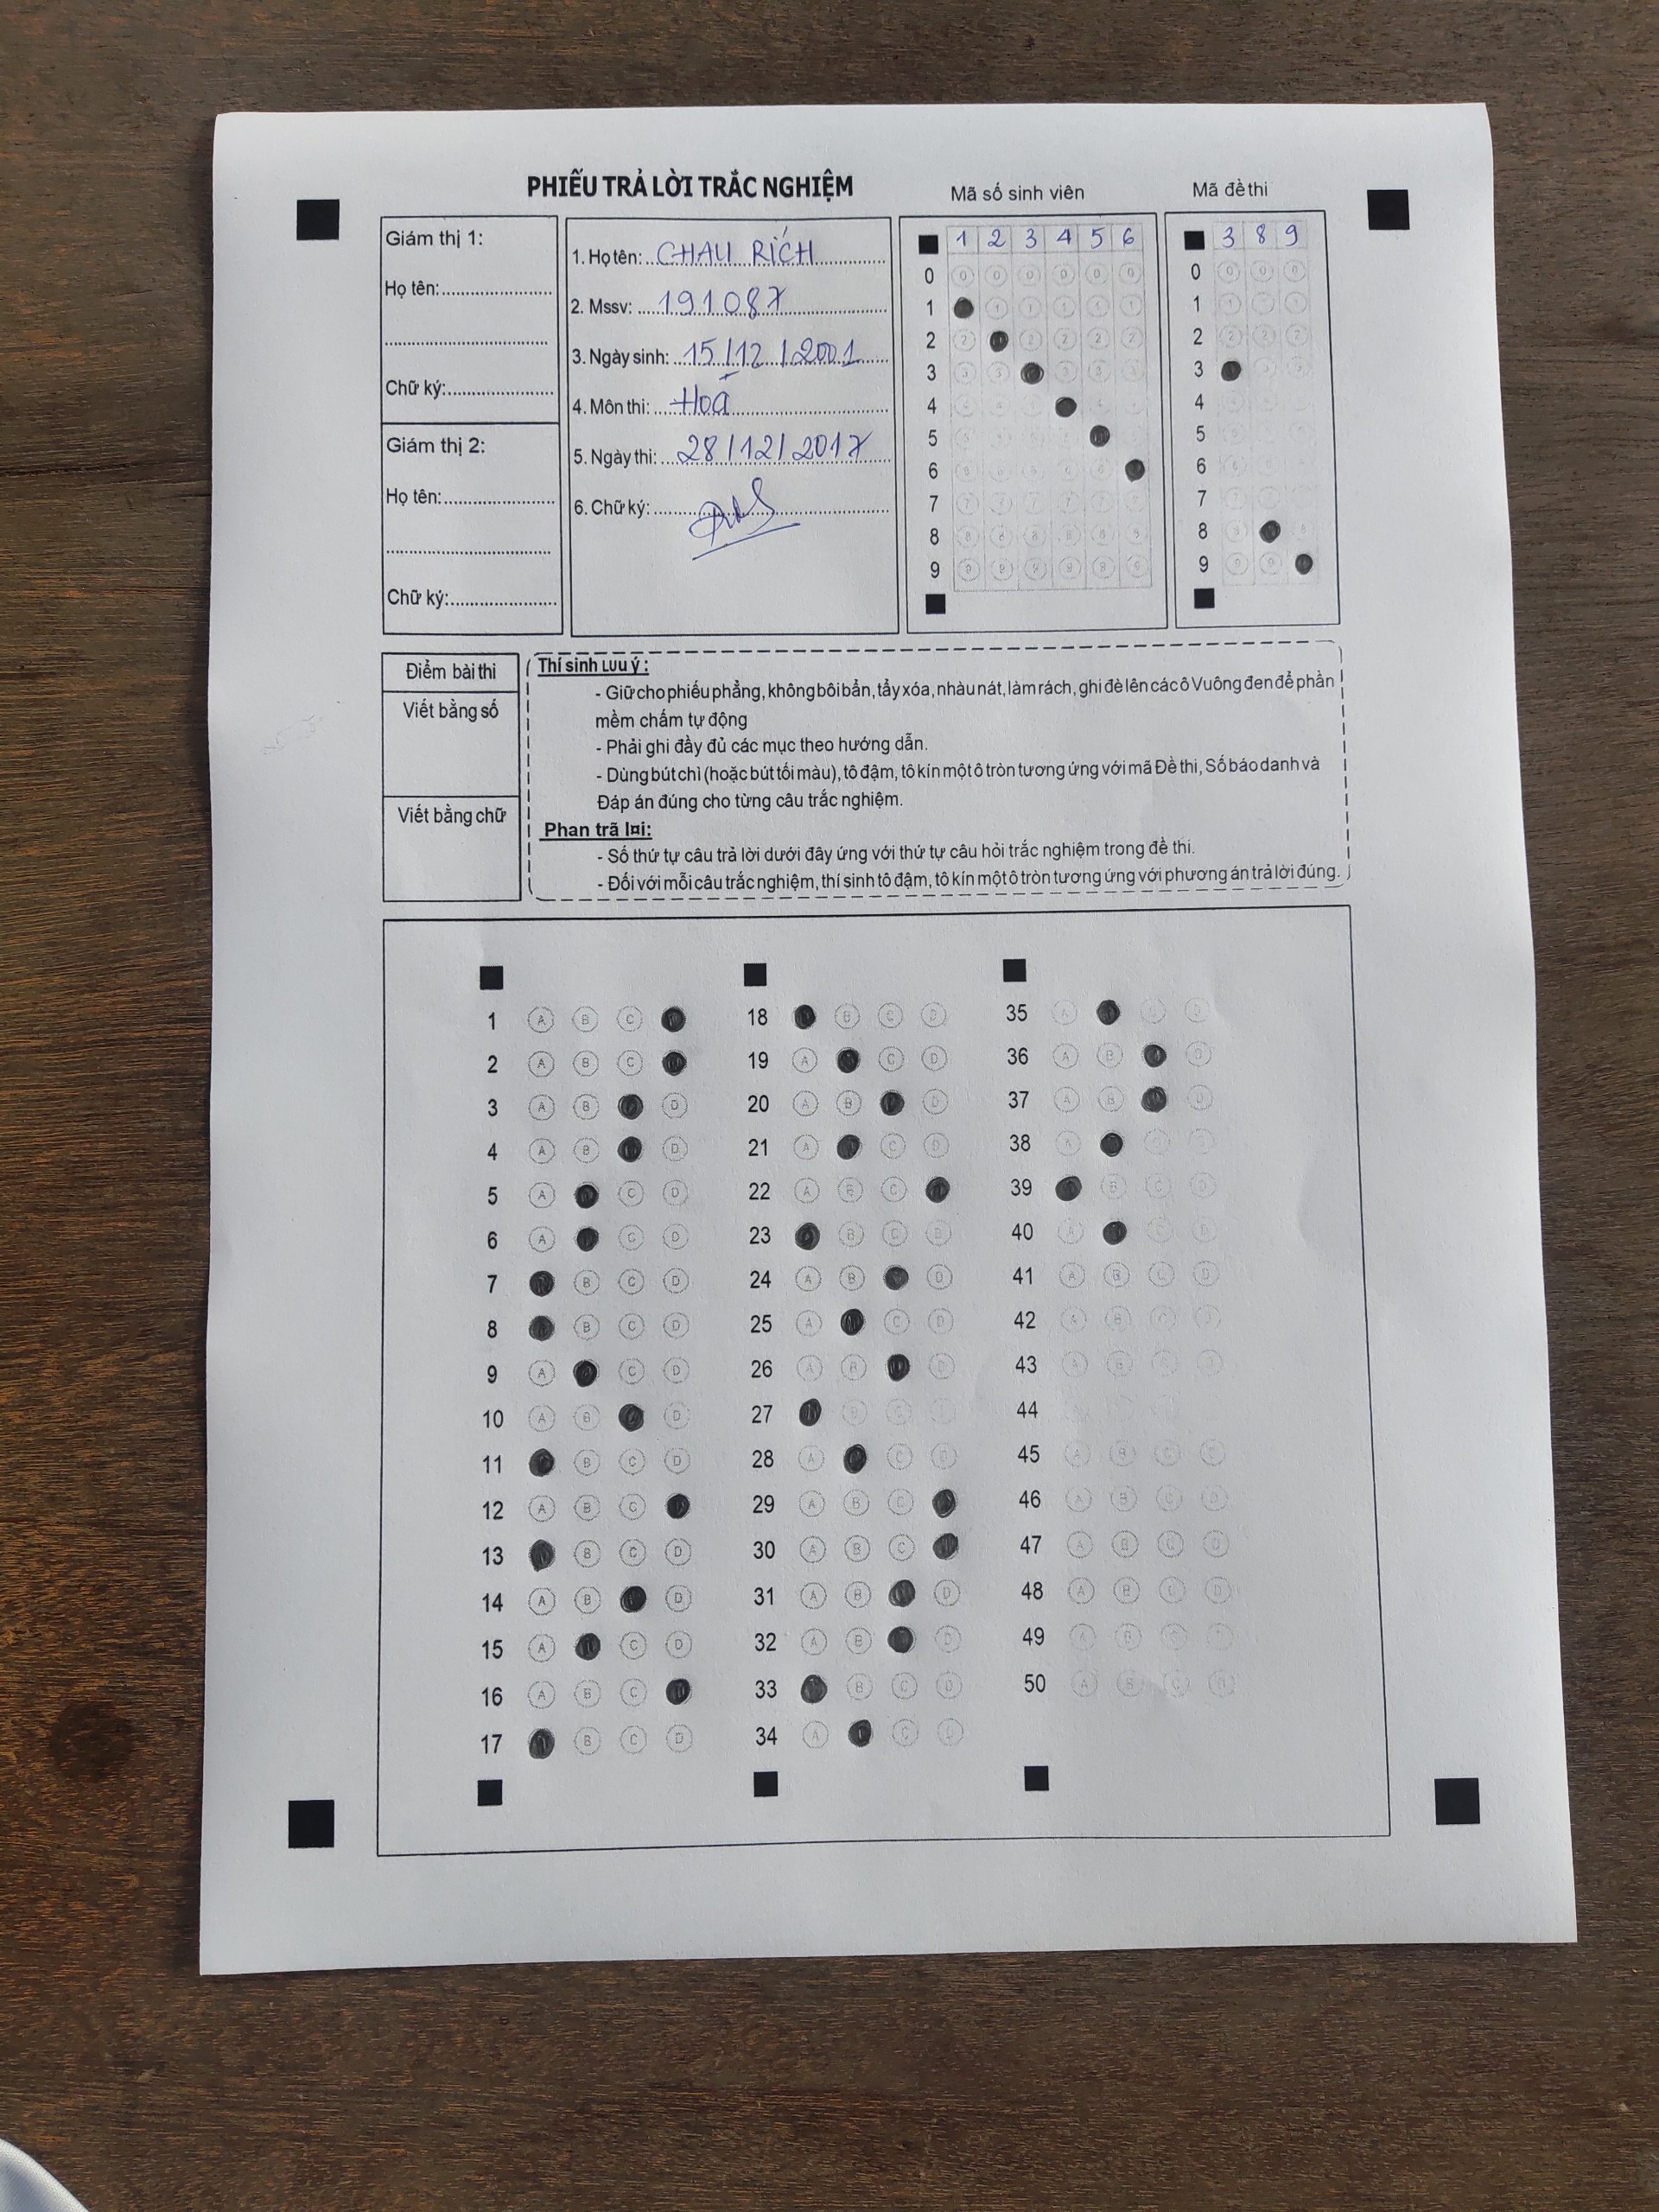 PHIẾU TRẢ LỜI TRẮC NGHIỆM
Mã số sinh viên
Mã đề thi
Giám thị 1:
Họ tên:
Chữ ký:
Giám thị 2:
Họ tên:
Chữ ký:
1. Họ tên: CHAU RÍCH
2. Mssv: 191087
3. Ngày sinh: 15/12/2001
4. Môn thi: Hoá
5. Ngày thi: 28/12/2017
6. Chữ ký:
1 2 3 4 5 6
0 0 0 0 0 0 0
1 1 1 1 1 1
2 2 2 2 2 2
3 3 3 3 3 3
4 4 4 4 4 4
5 5 5 5 5 5
6 6 6 6 6 6
7 7 7 7 7 7 7
8 8 8 8 8 8 8
9 9 9 9 9 9 9
3 8 9
0 0 0 0
1 1 1 1
2 2 2 2
3 3 3
4
5
6
7
8 8 8
9 9 9
Điểm bài thi
Viết bằng số
Viết bằng chữ
Thí sinh Lưu ý :
- Giữ cho phiếu phẳng, không bôi bẩn, tẩy xóa, nhàu nát, làm rách, ghi đè lên các ô Vuông đen để phần
mềm chấm tự động
- Phải ghi đầy đủ các mục theo hướng dẫn.
- Dùng bút chì (hoặc bút tối màu), tô đậm, tô kín một ô tròn tương ứng với mã Đề thi, Số báo danh và
Đáp án đúng cho từng câu trắc nghiệm.
Phan trã l¤i:
- Số thứ tự câu trả lời dưới đây ứng với thứ tự câu hỏi trắc nghiệm trong đề thi.
- Đối với mỗi câu trắc nghiệm, thí sinh tô đậm, tô kín một ô tròn tương ứng với phương án trả lời đúng.
1 A B C
2 A B C
3 A B D
4 A B D
5 A C D
6 A C D
7 B C D
8 B C D
9 A C D
10 A B D
11 B C D
12 A B C
13 B C D
14 A B D
15 A C D
16 A B C
17 B C D
18 B C D
19 A C D
20 A B D
21 A C D
22 A B C
23 B C D
24 A B D
25 A C D
26 A B D
27 B C
28 A C D
29 A B C
30 A B C
31 A B D
32 A B D
33 B C D
34 A C D
35 A C D
36 A B D
37 A B D
38 A
39 B C D
40 A C D
41 A B C D
42 A B C D
43 A B
44
45 A B C D
46 A B C D
47 A B C D
48 A B C D
49 A B C
50 A B C D